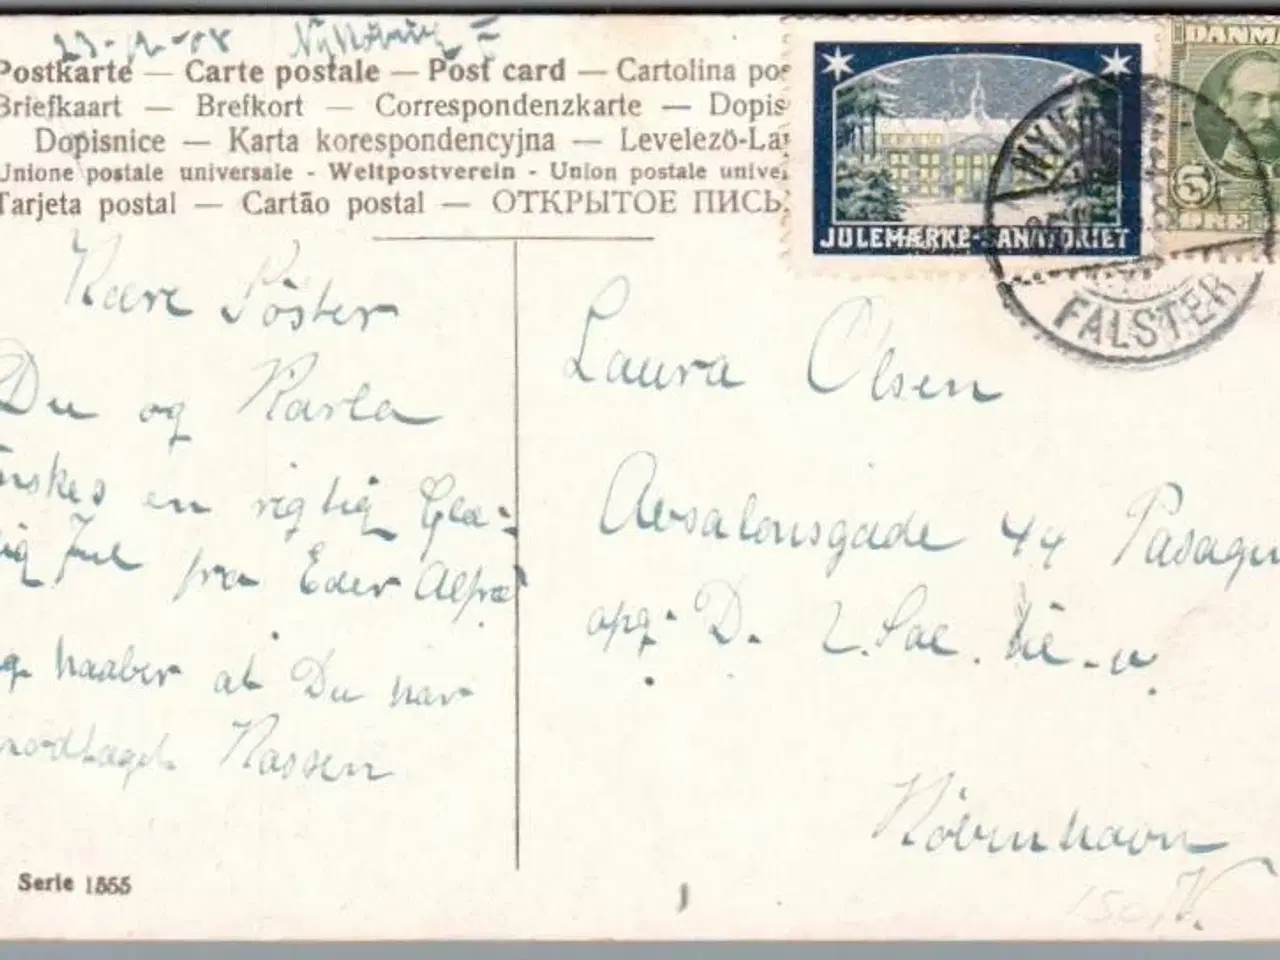 23-12-08 Nyköbing F
Postkarte — Carte postale — Post card — Cartolina pos
Briefkaart — Brefkort — Correspondenzkarte — Dopis
Dopisnice — Karta korespondencyjna — Levelezö-La
Unione postale universale - Weltpostverein - Union postale unive
Tarjeta postal — Cartão postal — ОТКРЫТОЕ ПИСЬ
JULEMÆRKE-SANATORIET
DANMA
5
ØRE
NYK
FALSTER
Kære Söster
Du og Karla
önskes en rigtig Glæ-
lig Jul fra Eder Alfred
og haaber at Du har
modtaget Kassen
Laura Olsen
Absalonsgade 44
opg. D. 2. Sal
Köbenhavn
V.
Serie 1555